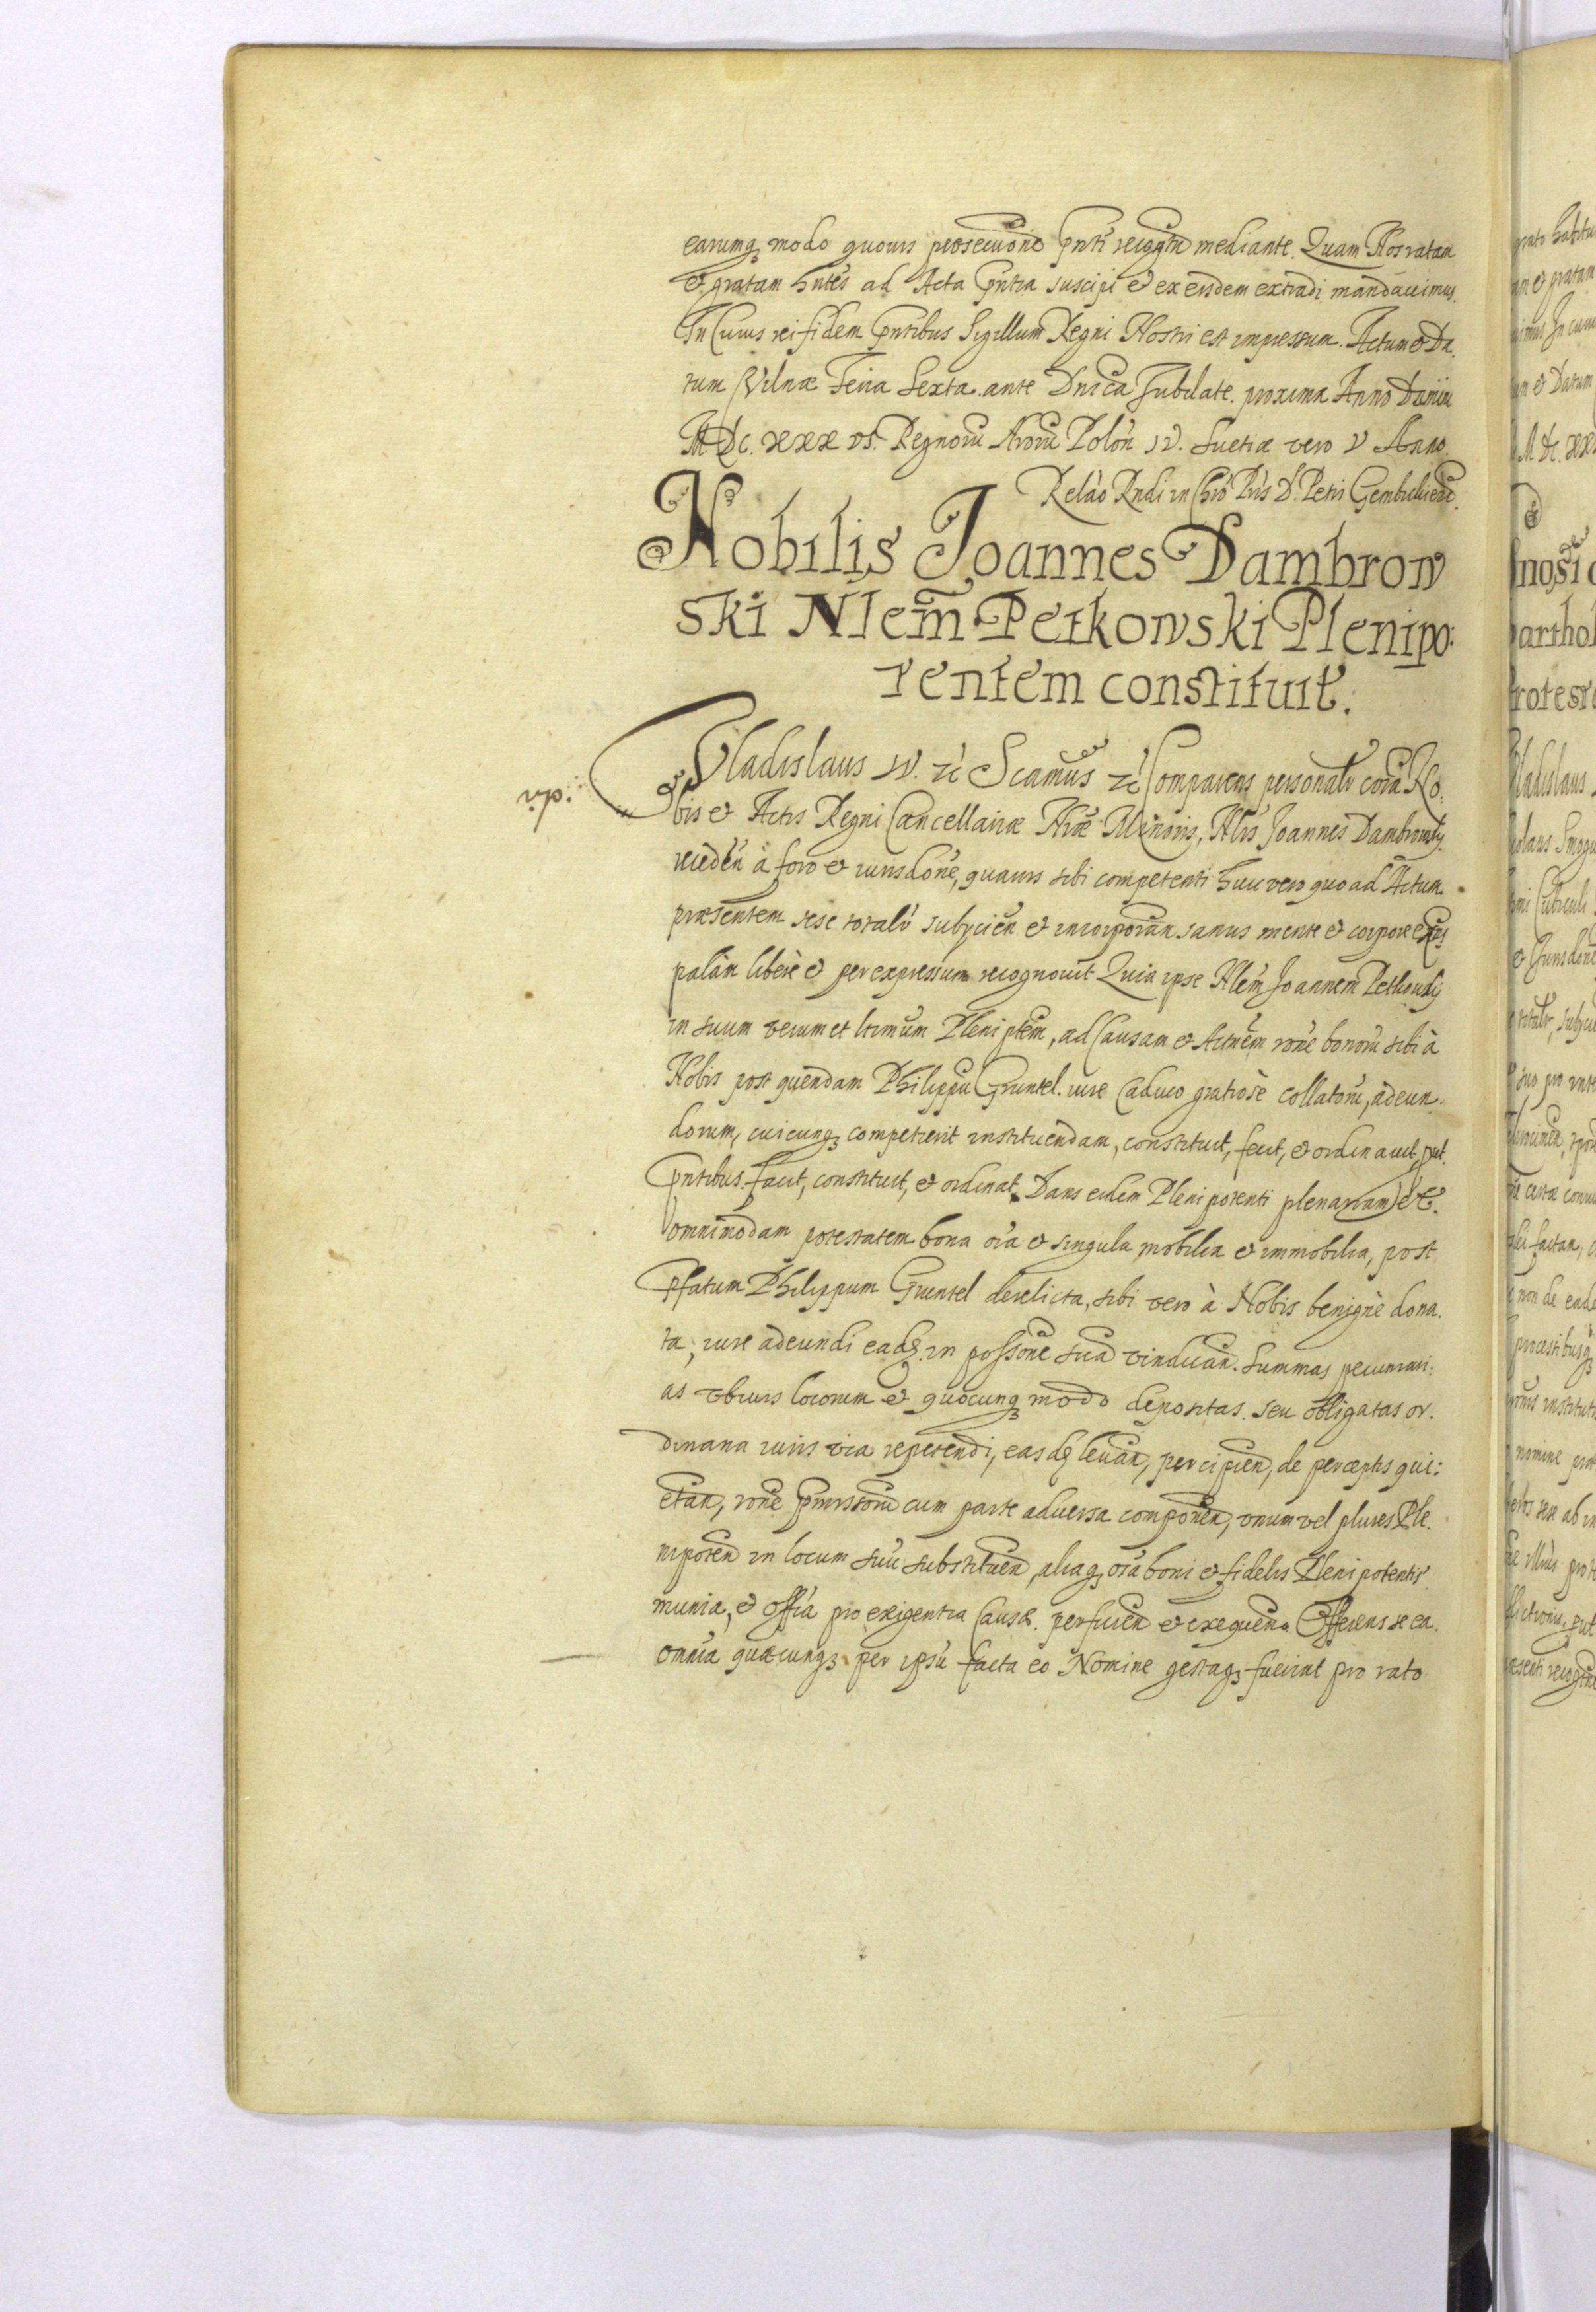 earumq modo quovis prosecutione pnti recogne mediante. Quam Nos ratam
et gratam hntes ad Acta pntia suscipi et ex eisdem extradi mandavimus.
In Cuius rei fidem pntibus Sigillum Regni Nostri est impressum. Actum et Da.
tum Vilnæ Feria Sexta ante Dnica Jubilate proxima Anno Domini
M Dc. xxx vi. Regnoru Nroru Polon IV. Suetiæ vero V Anno.
Relao Rndi in Chro Pris D. Petri Gembicki etc.
Nobilis Joannes Dambrow
ski Nlem Petkowski Plenipo:
tentem constituit.
vp:
Vladislaus IV. etc Scamus etc Comparens personalr cora No.
bis et Actis Regni Cancellariæ Nræ Minoris, Nlis Joannes Dambrowsky
reieden à foro et iurisdone, quavis sibi competenti huic vero quo ad Actum
præsentem sese totalr subycien et incorporan sanus mente et corpore exns
palàm liberè et per expressum recognovit Quia ipse Nlem Joannem Petkowsky
in suum verum et ltimum Pleniptem, ad Causam et Actnem rone bonoru sibi à
Nobis post quendam Philippu Gruntel. iure Caduco gratiosè collatoru, adeun.
dorum, cuicunq competierit instituendam, constituit, fecit, et ordinavit, put
pntibus facit, constituit, et ordinat. Dans eidem Plenipotenti plenariam et
omnimodam potestatem bona oia et singula mobilia et immobilia, post
pfatum Philippum Gruntel derelicta, sibi vero à Nobis benignè dona.
ta, iure adeundi eadq in possone sua vindican. Summas pecuniari:
as ubivis locorum et quocunq modo depositas seu obligatas or.
dinaria iuris via repetendi, easdq levan, percipien, de perceptis qui:
etan, rone pmissoru cum parte adversa componen, unum vel plures Ple.
nipoten in locum suu substituen, aliaq oia boni et fidelis Plenipotentis
munia, et offia pro exigentia Causæ perficien et exequen. Offerens se ea
omnia quæcunq per ipsu facta eo Nomine gestaq fuerint pro rato